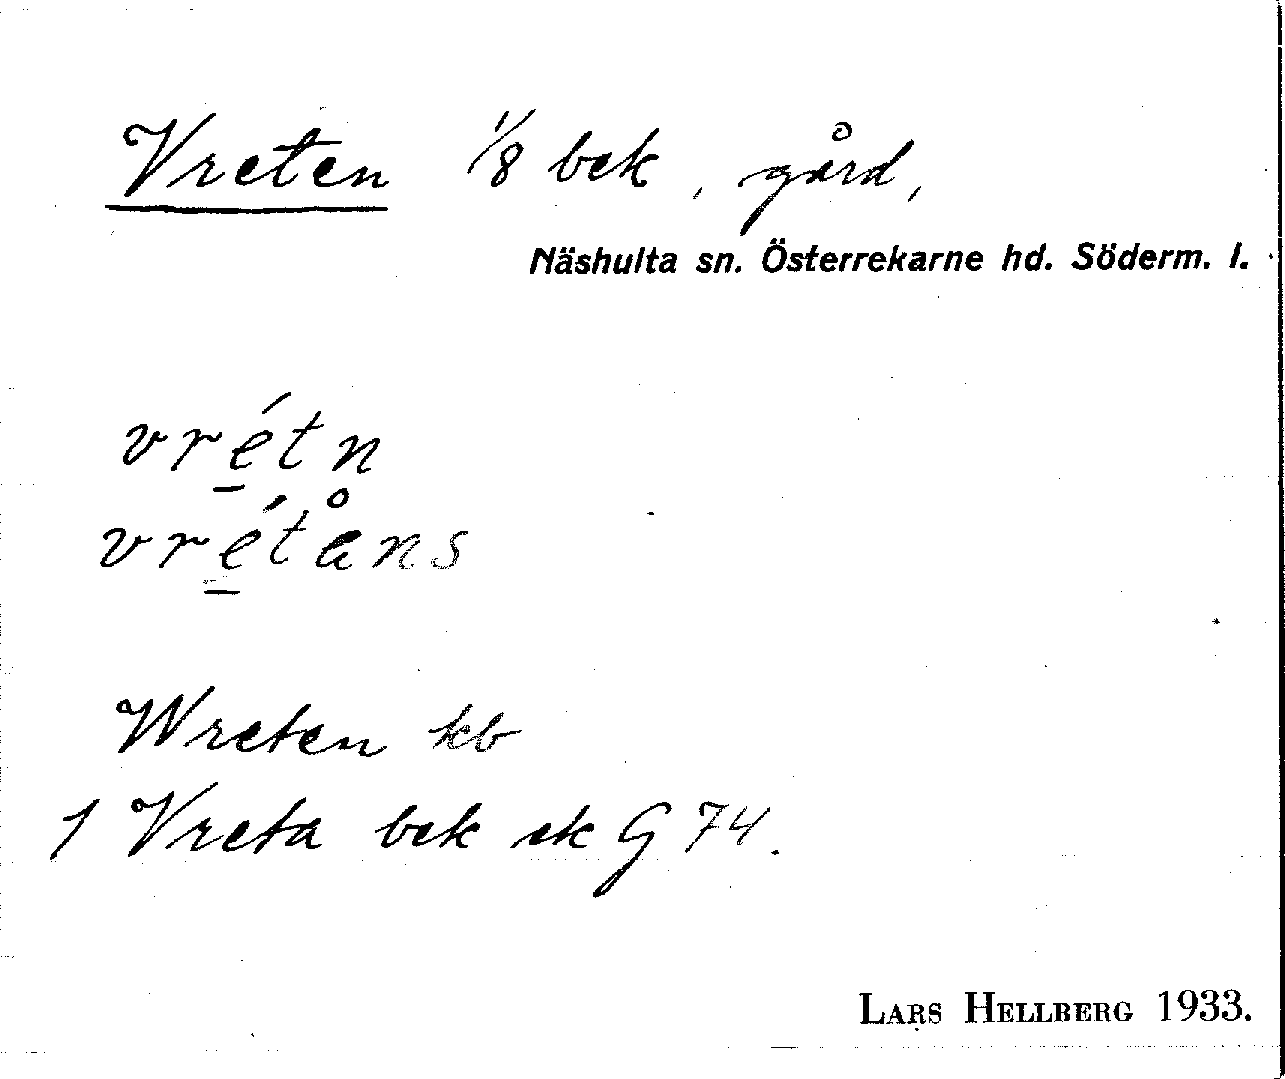 Vreten 1/8 bek, gård,
Näshulta sn. Österrekarne hd. Söderm. l.
vré̲tn
vré̲tåns
Wreten kb
1 Vreta bek ek G 74.
LARS HELLBERG 1933.